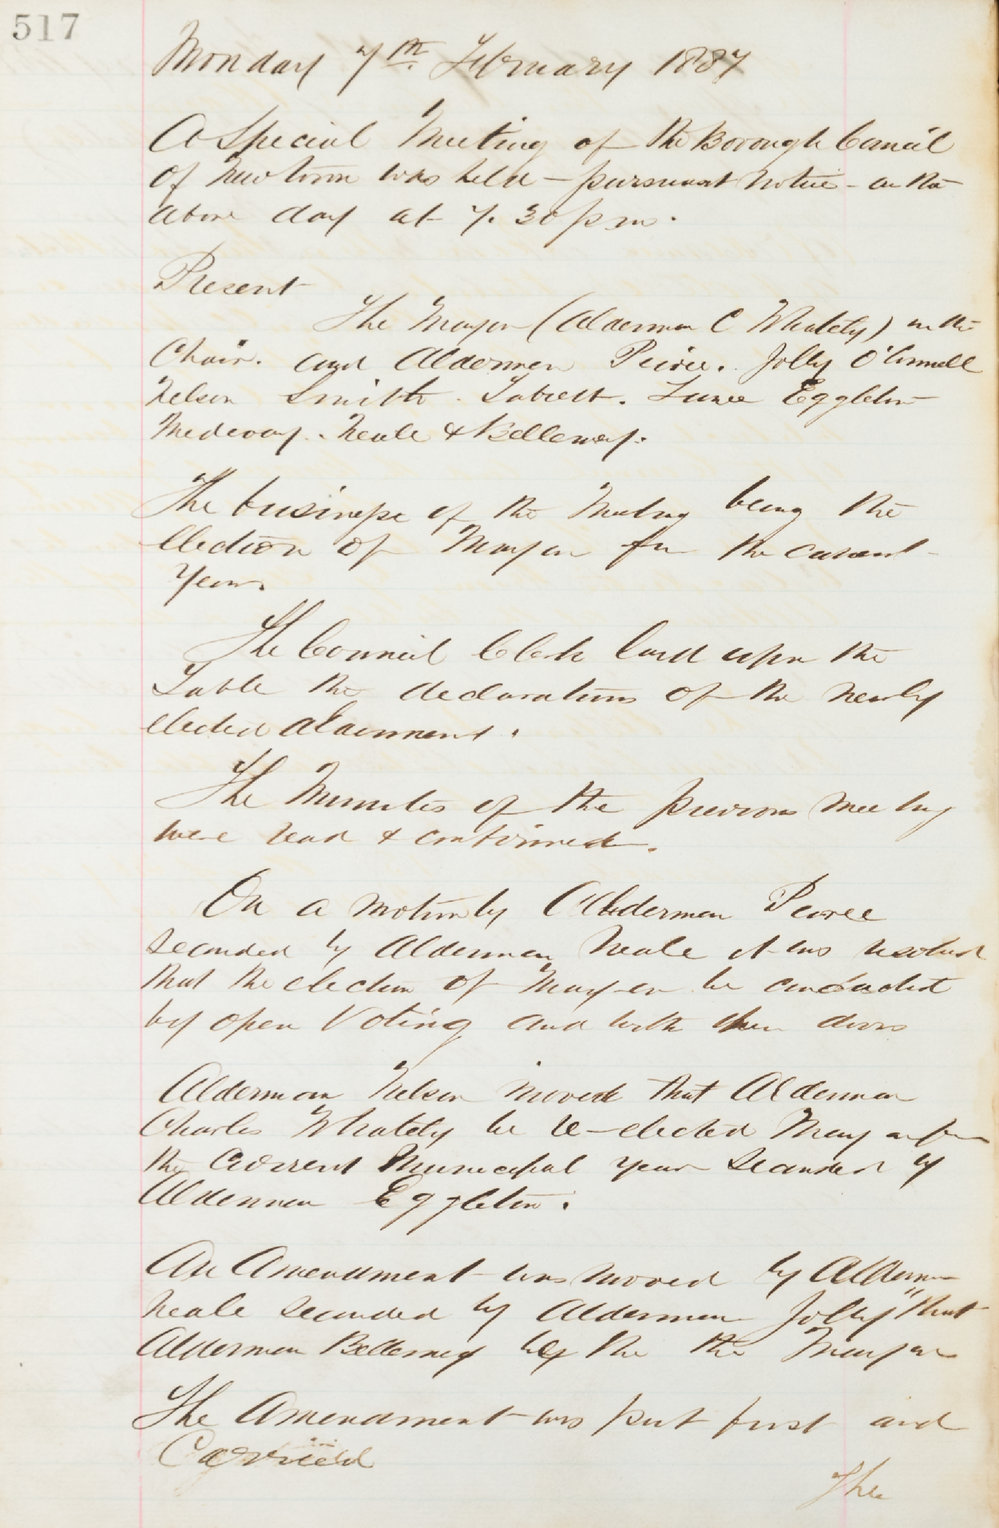 517
Monday 7th. February 1887
A Special Meeting of the Borough Council
of Newtown was held - pursuant Notice - on the
above day at 7.30 pm.
Present
The Mayor (Alderman C Whately) in the
Chair. and Aldermen Peirce. Jolly O'Connell
Nelson Smith. Turee Eggleton
Medway. Neale & Bellemey.
The business of the Meeting being the
election of Mayor for the current
Year.
The Council Clerk laid upon the
Table the declarations of the newly
elected aldermen.
The Minutes of the previous Meeting
were read & confirmed.
On a motion by Alderman Peirce
seconded by Alderman Neale it was resolved
that the election of Mayor be conducted
by open Voting and with open doors
Alderman Nelson moved that Alderman
Charles Whately be re-elected Mayor for
the Current Municipal year Seconded by
Alderman Eggleton.
An Amendment was moved by Alderman
Neale seconded by Alderman Jolly "that
Alderman Bellemey be the the Mayor
The Amendment was put first and
Carried
The